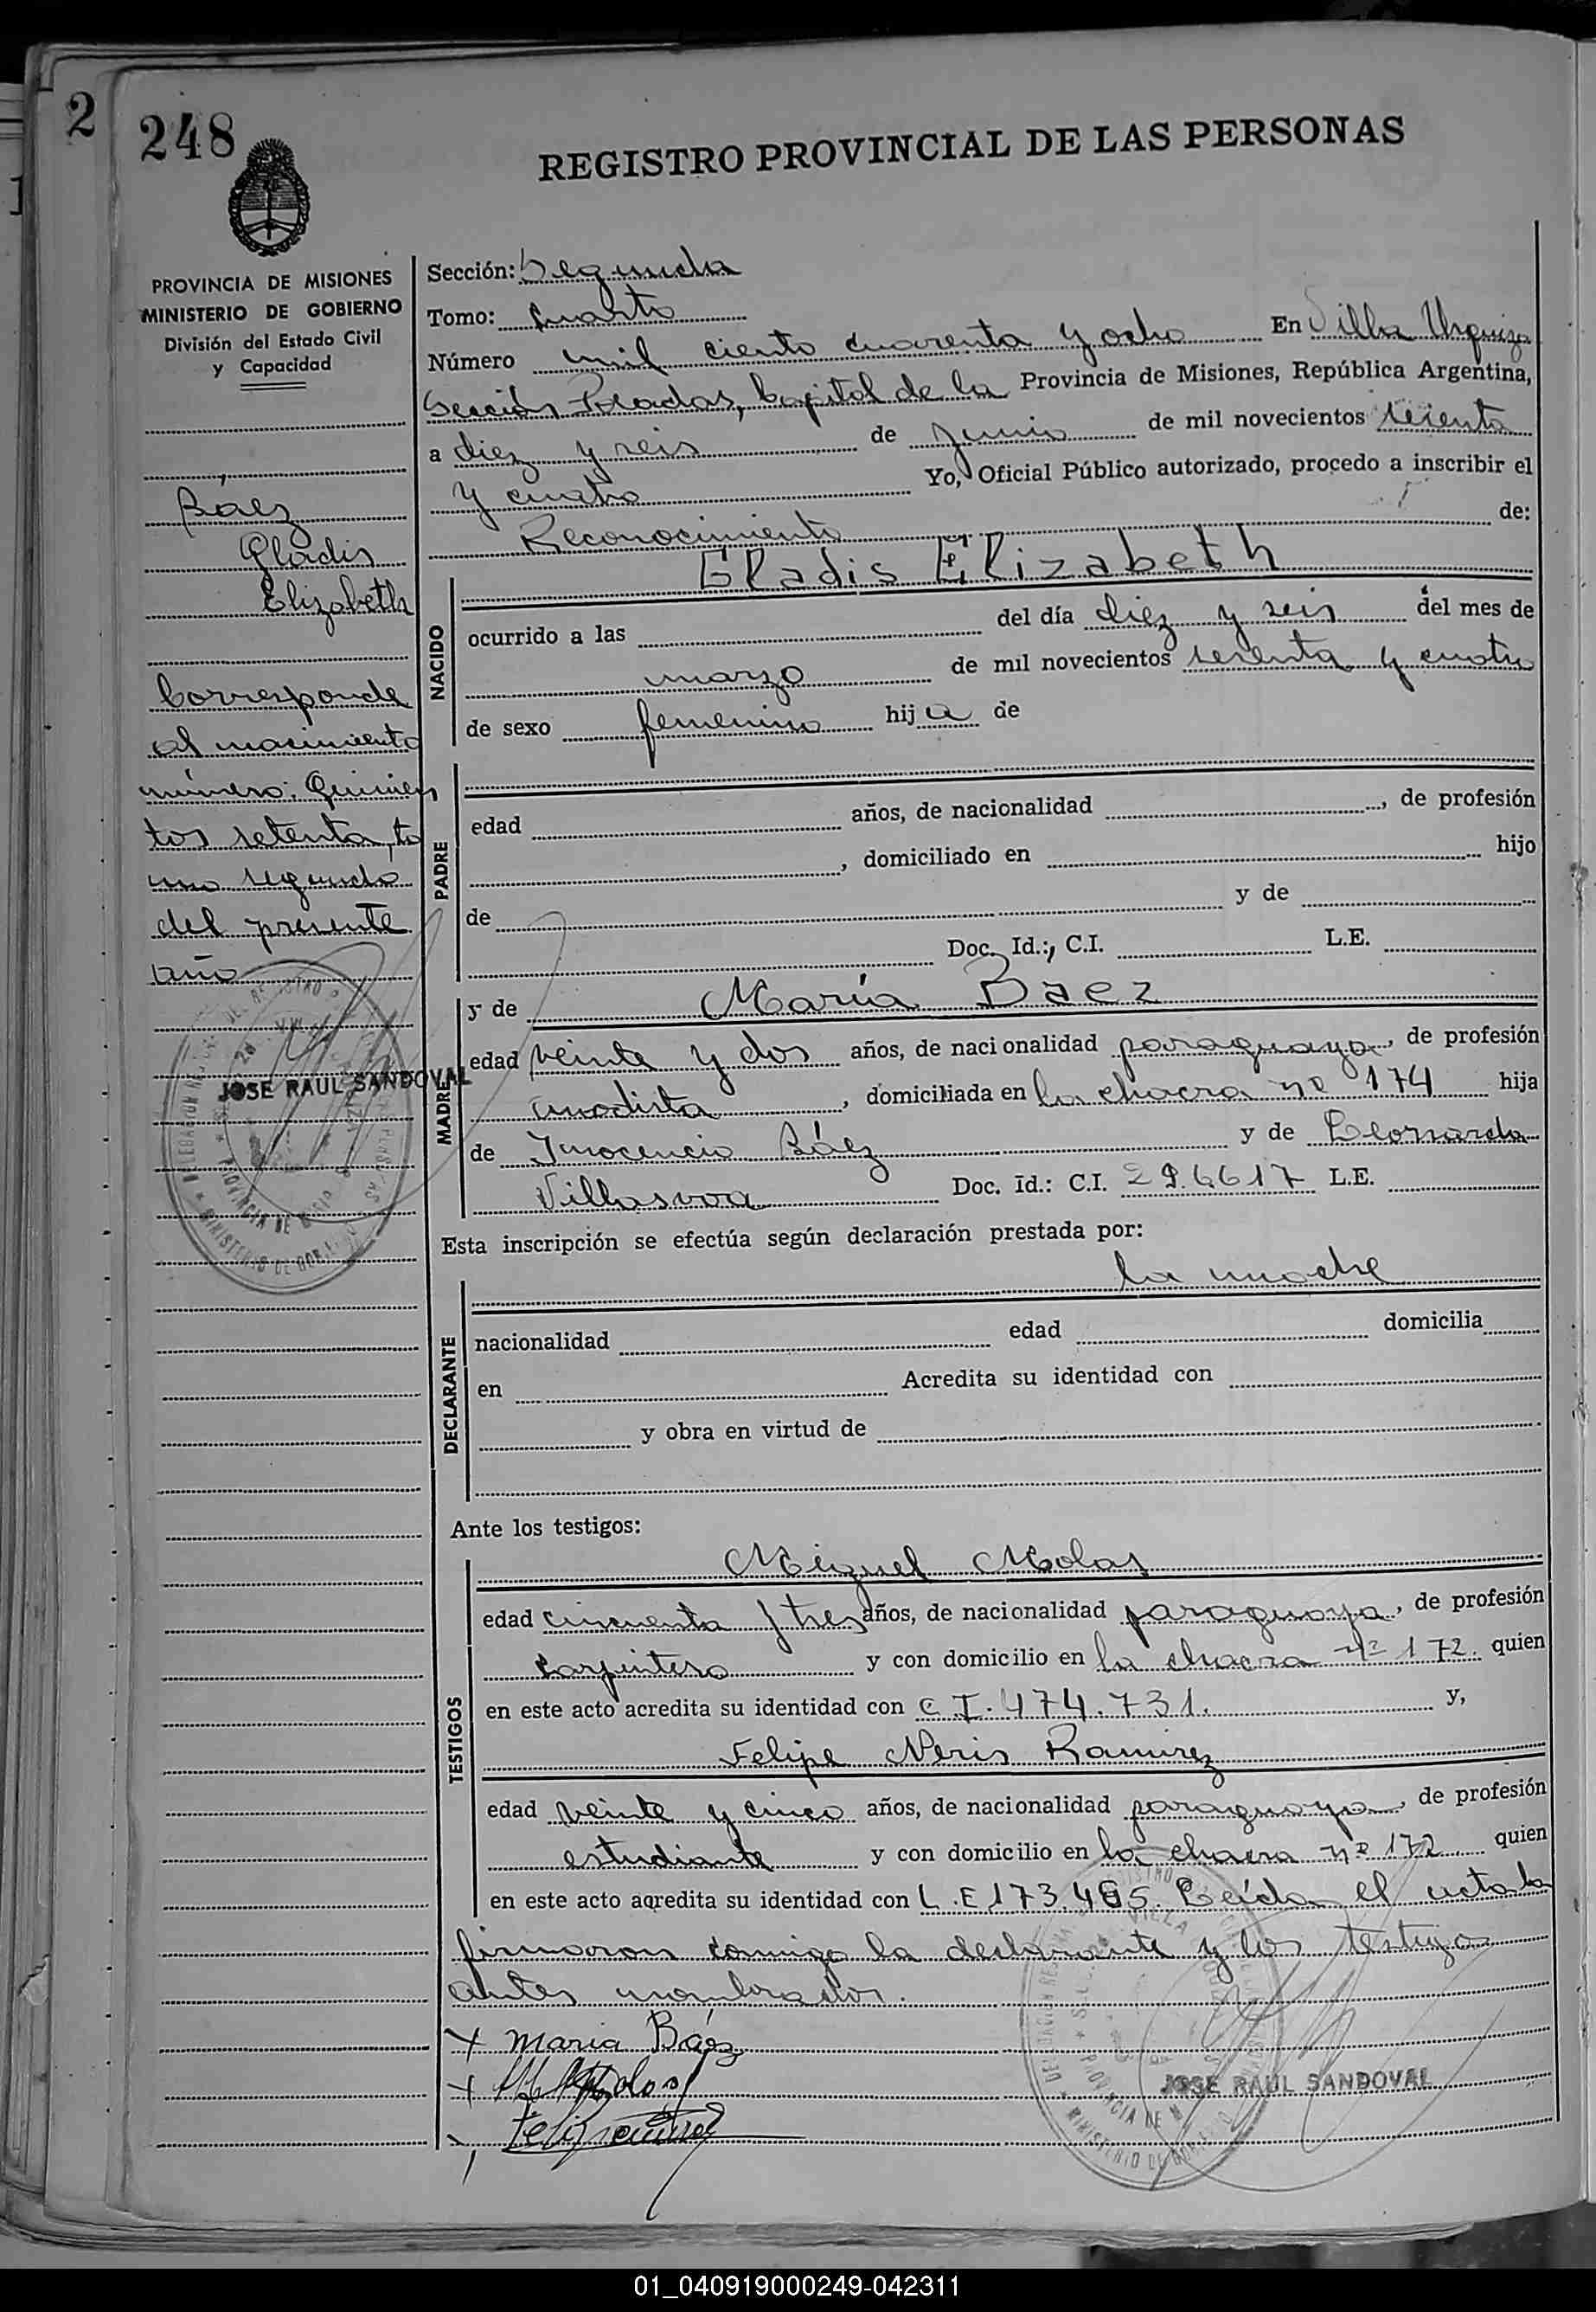 2
248
REGISTRO PROVINCIAL DE LAS PERSONAS
PROVINCIA DE MISIONES
MINISTERIO DE GOBIERNO
División del Estado Civil
y Capacidad
Báez
Gladis
Elizabeth
Corresponde
al nacimiento
número: Quinien
tos setenta, to
mo segundo
del presente
año
JOSE RAUL SANDOVAL
Sección: Segunda
Tomo: Cuarto
Número mil ciento cuarenta y ocho En Villa Urquiza
Sección Posadas, Capital de la Provincia de Misiones, República Argentina,
a diez y seis de Junio de mil novecientos sesenta
y cuatro Yo, Oficial Público autorizado, procedo a inscribir el
Reconocimiento de:
Gladis Elizabeth
NACIDO
ocurrido a las del día diez y seis del mes de
marzo de mil novecientos sesenta y cuatro
de sexo femenino hija de
PADRE
edad años, de nacionalidad , de profesión
, domiciliado en hijo
de y de
Doc. Id.: C.I. L.E.
MADRE
y de María Baez
edad veinte y dos años, de nacionalidad paraguaya, de profesión
modista, domiciliada en la chacra nº 174 hija
de Inocencio Báez y de Leonarda
Villasvoa Doc. Id.: C.I. 296617 L.E.
Esta inscripción se efectúa según declaración prestada por:
la madre
DECLARANTE
nacionalidad edad domicilia
en Acredita su identidad con
y obra en virtud de
Ante los testigos:
TESTIGOS
Miguel Molas
edad cincuenta y tres años, de nacionalidad paraguaya, de profesión
carpintero y con domicilio en la chacra nº 172. quien
en este acto acredita su identidad con C I. 474.731. y,
Felipe Neris Ramirez
edad veinte y cinco años, de nacionalidad paraguaya, de profesión
estudiante y con domicilio en la chacra nº 172 quien
en este acto acredita su identidad con L.E 173.465. Leída el acta la
firmaron conmigo la declarante y los testigos
antes nombrados.
+ Maria Báez
JOSE RAUL SANDOVAL
01_040919000249-042311